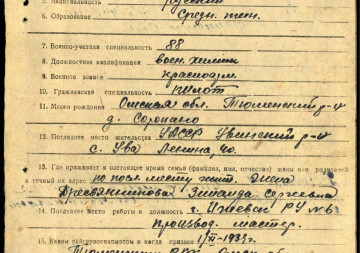 русский
6. Образование Средн. тех.
7. Военно-учетная специальность 88
8. Должностная квалификация воен. химик
9. Военное звание красноарм.
10. Гражданская специальность пилот
11. Место рождения Омская обл. Тюменский р-н
д.
12. Последнее место жительства УАССР Увинский р-н
с. Ува Ленина, 40.
13. Где проживает в настоящее время семья (фамилия, имя, отчество) жены или родителей
и точный их адрес по посл. месту жит. Жена
Зинаида Сергеевна
14. Последнее место работы и должность г. Ижевск РУ №
производ. мастер.
15. Каким райгорвоенкоматом и когда призван